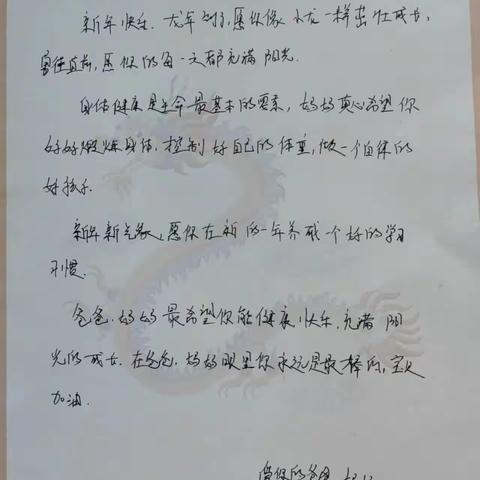 新年快乐．龙年到了，愿你像小龙一样茁壮成长，
勇往直前，愿你的每一天都充满阳光．
身体健康是生命最基本的要素，妈妈真心希望你
好好锻炼身体，控制好自己的体重，做一个自律的
好孩子．
新年新气象，愿你在新的一年养成一个好的学习
习惯．
爸爸．妈妈最希望你能健康，快乐，充满阳
光的成长．在爸爸．妈妈眼里你永远是最棒的，宝贝
加油．
爱你的爸爸